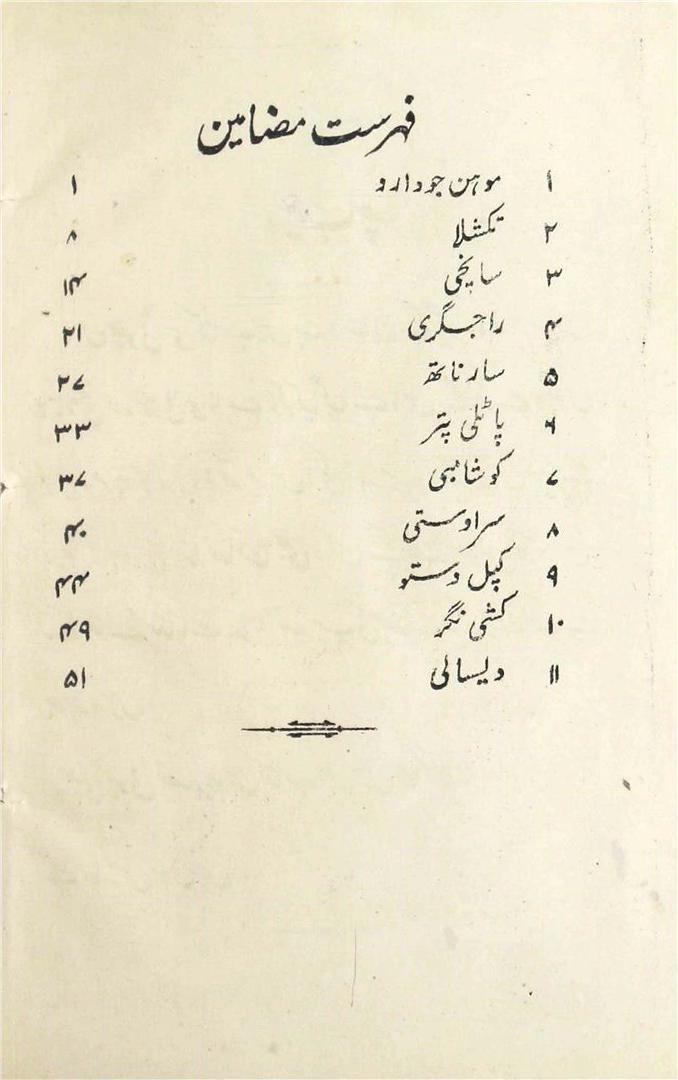 فہرست مضامین
۱ موہن جودارو ۱
۲ تکشلا ۸
۳ سانچی ۱۴
۴ راجگری ۲۱
۵ سارناتھ ۲۷
۶ پاٹلی پتر ۳۳
۷ کوشامبی ۳۷
۸ سراوستی ۴۰
۹ کپل وستو ۴۴
۱۰ کشی نگر ۴۹
۱۱ ویسالی ۵۱